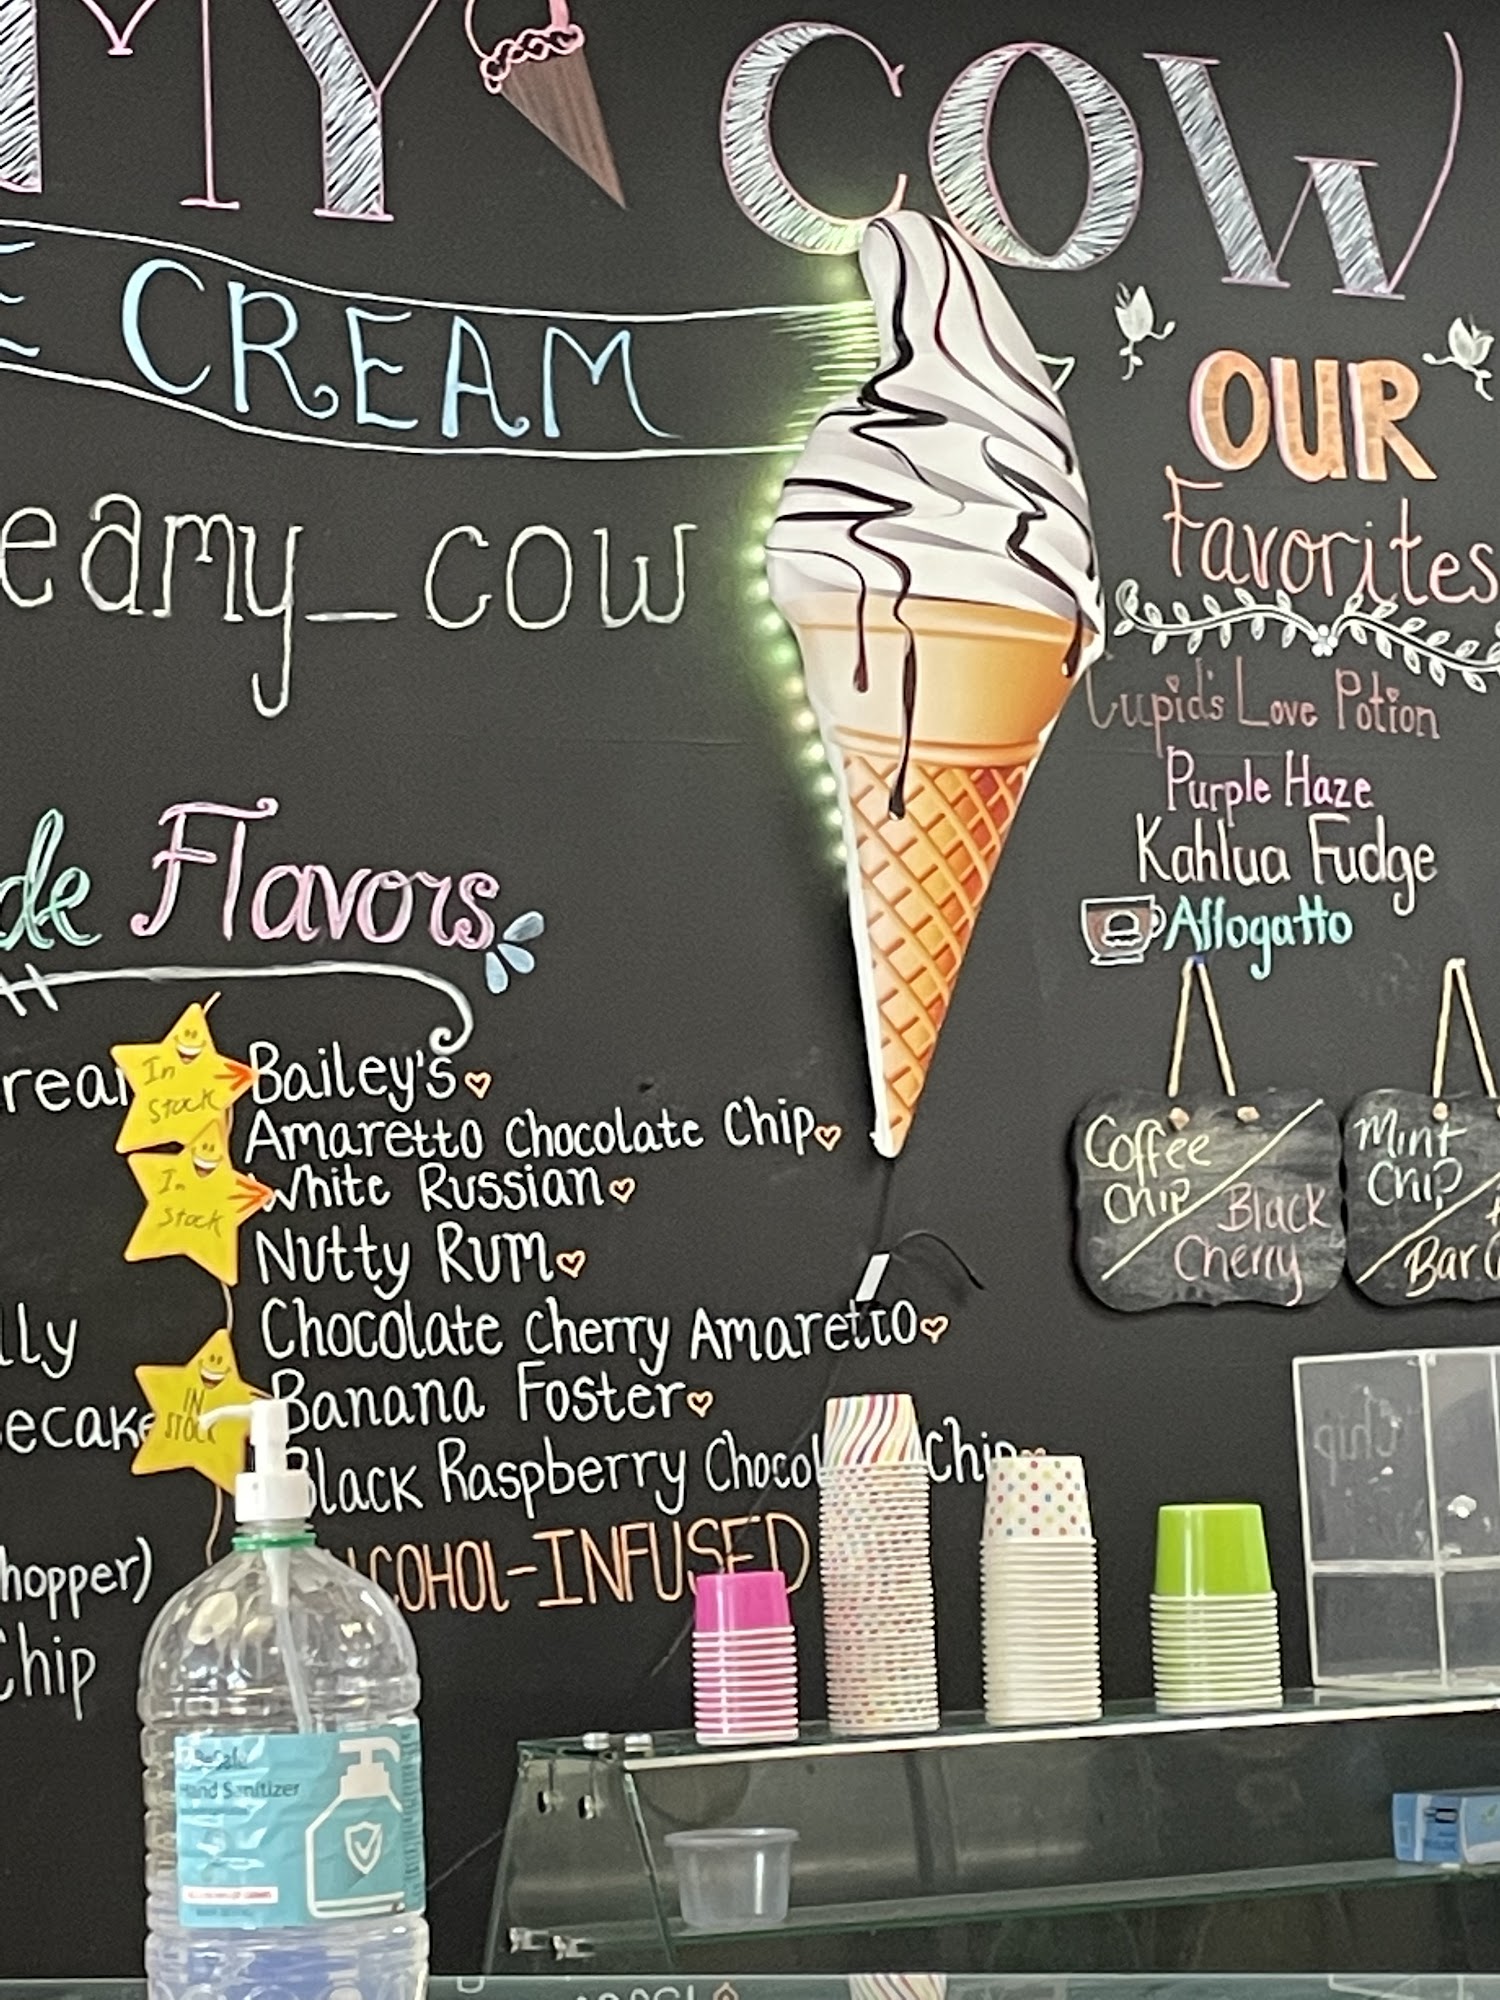 MY COW
E CREAM
eamy_cow
OUR
Favorites
Cupid's Love Potion
Purple Haze
Kahlua Fudge
Affogatto
de Flavors
In
Stock
Bailey's
Amaretto Chocolate Chip
In
Stock
White Russian
Nutty Rum
Chocolate Cherry Amaretto
IN
STOCK
Banana Foster
Black Raspberry Chocol Chip
LCOHOL-INFUSED
lly
ecake
hopper)
Chip
Coffee
Chip/Black
Cherry
Mint
Chip
Bar
Hand Sanitizer